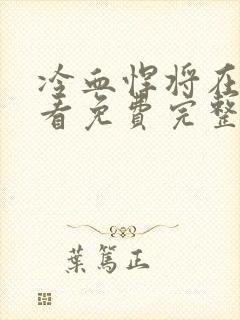 冷血悍将在
看免费完整
葉篤正